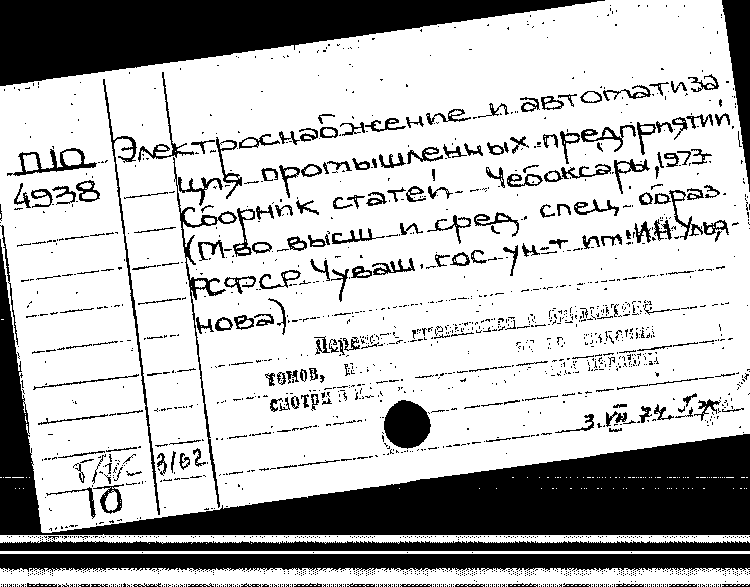 П10
4938
Электроснабжение и автоматиза-
ция промышленных предприятий
Сборник статей Чебоксары, 1973.
(М-во высш и сред. спец. образ.
РСФСР Чуваш. гос. ун-т им. И.Н Улья-
нова).
в библиотеке
томов, издания
смотри в
3.VII.74.
3/62
10